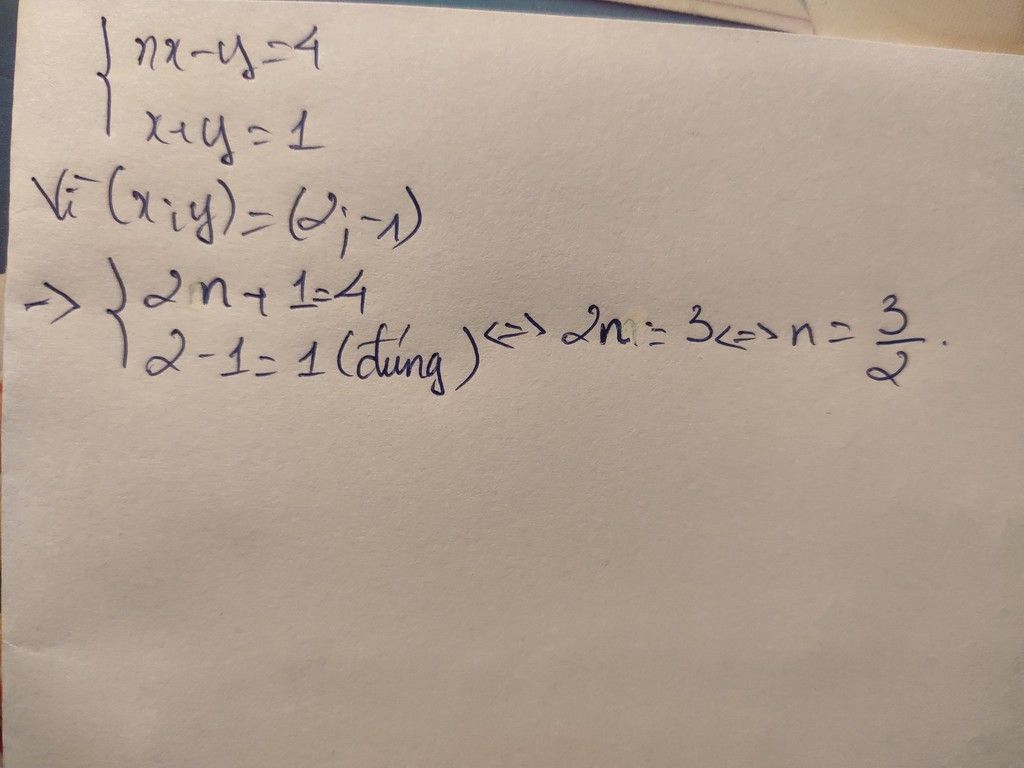 { nx-y=4
x+y=1
Vì (x;y)=(2;-1)
=> { 2n+1=4
2-1=1 (đúng) <=> 2n=3 <=> n=3/2.